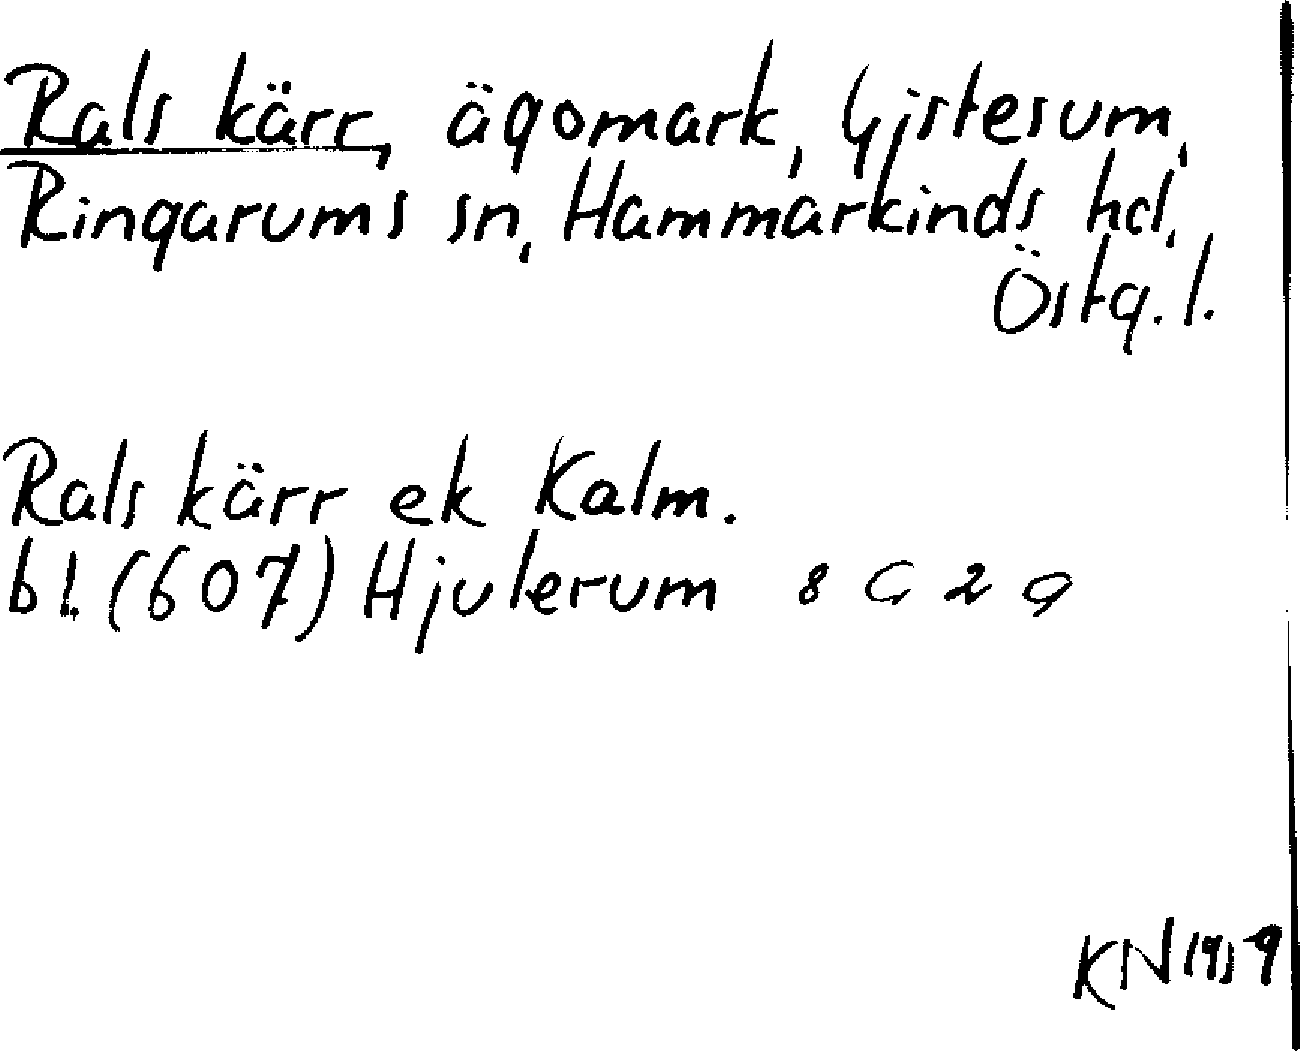 Rals kärr, ägomark, Gistesum,
Ringarums sn, Hammarkinds hd,
Östg. l.
Rals kärr ek Kalm.
bl. (607) Hjulerum 8 G 2 a
KN 1959